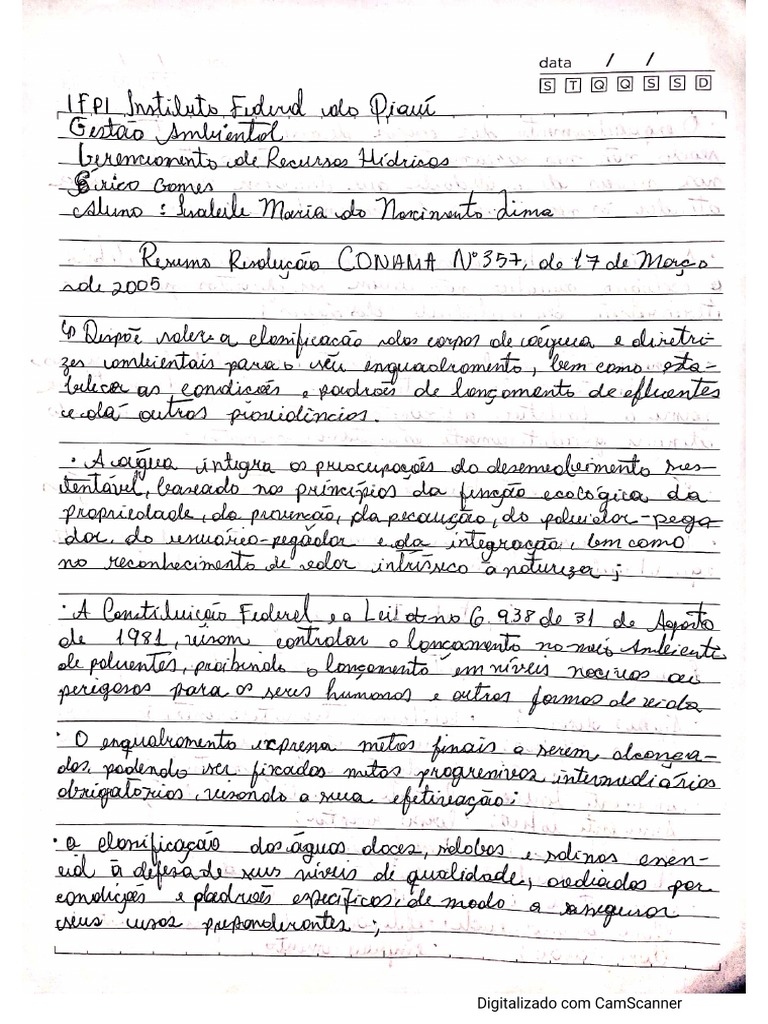 data / /
S T Q Q S S D
IFPI Instituto Federal do Piauí
Gestão Ambiental
Gerenciamento de Recursos Hídricos
Érico Gomes
Aluno : Maria do Nascimento Lima
Resumo Resolução CONAMA Nº 357, de 17 de Março
de 2005
↳ Dispõe sobre a classificação dos corpos de água e diretri-
zes ambientais para o seu enquadramento, bem como esta-
belece as condições e padrões de lançamento de efluentes
e dá outras providências.
· A água integra os preocupações do desenvolvimento sus-
tentável, baseado nos princípios da função ecológica da
propriedade, da prevenção, da precaução, do poluidor-paga
dor, do usuário-pagador e da integração, bem como
no reconhecimento de valor intrínseco à natureza;
· A Constituição Federal e a Lei no 6.938 de 31 de Agosto
de 1981, visam controlar o lançamento no meio Ambiente
de poluentes, proibindo o lançamento em níveis nocivos ou
perigosos para os seres humanos e outros formas de vida
· O enquadramento expressa metas finais a serem alcança-
dos, podendo ser fixados metas progressivas intermediários
obrigatórios, visando a sua efetivação;
· a classificação das águas doces, salobas e salinas essen-
cial à defesa de seus níveis de qualidade, avaliados por
condições e padrões específicos de modo a assegurar
seus usos preponderantes ;
Digitalizado com CamScanner